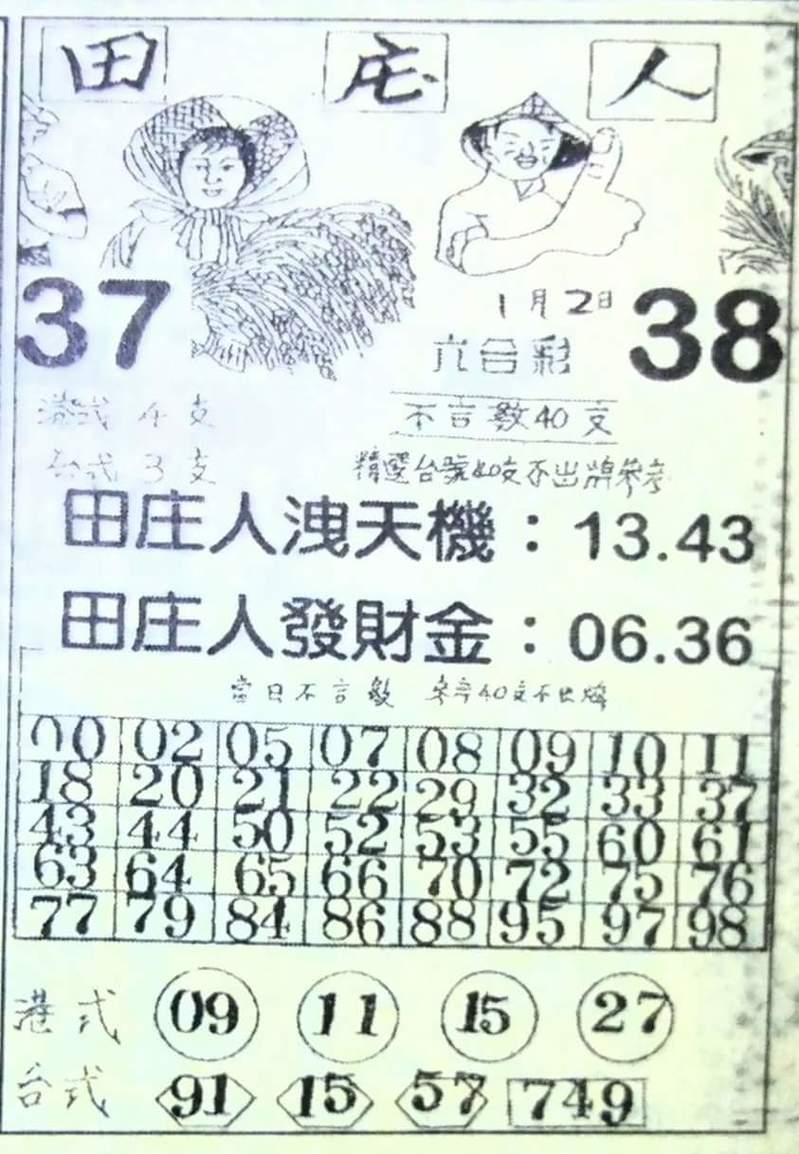 田 庄 人
37 1月2日 38
六合彩
港式 4支 不言數40支
台式 3支 精選台號40支不出牌參考
田庄人洩天機：13.43
田庄人發財金：06.36
當日不言數 參考40支不出牌
00 02 05 07 08 09 10 11
18 20 21 22 29 32 33 37
43 44 50 52 53 55 60 61
63 64 65 66 70 72 75 76
77 79 84 86 88 95 97 98
港式 09 11 15 27
台式 91 15 57 749